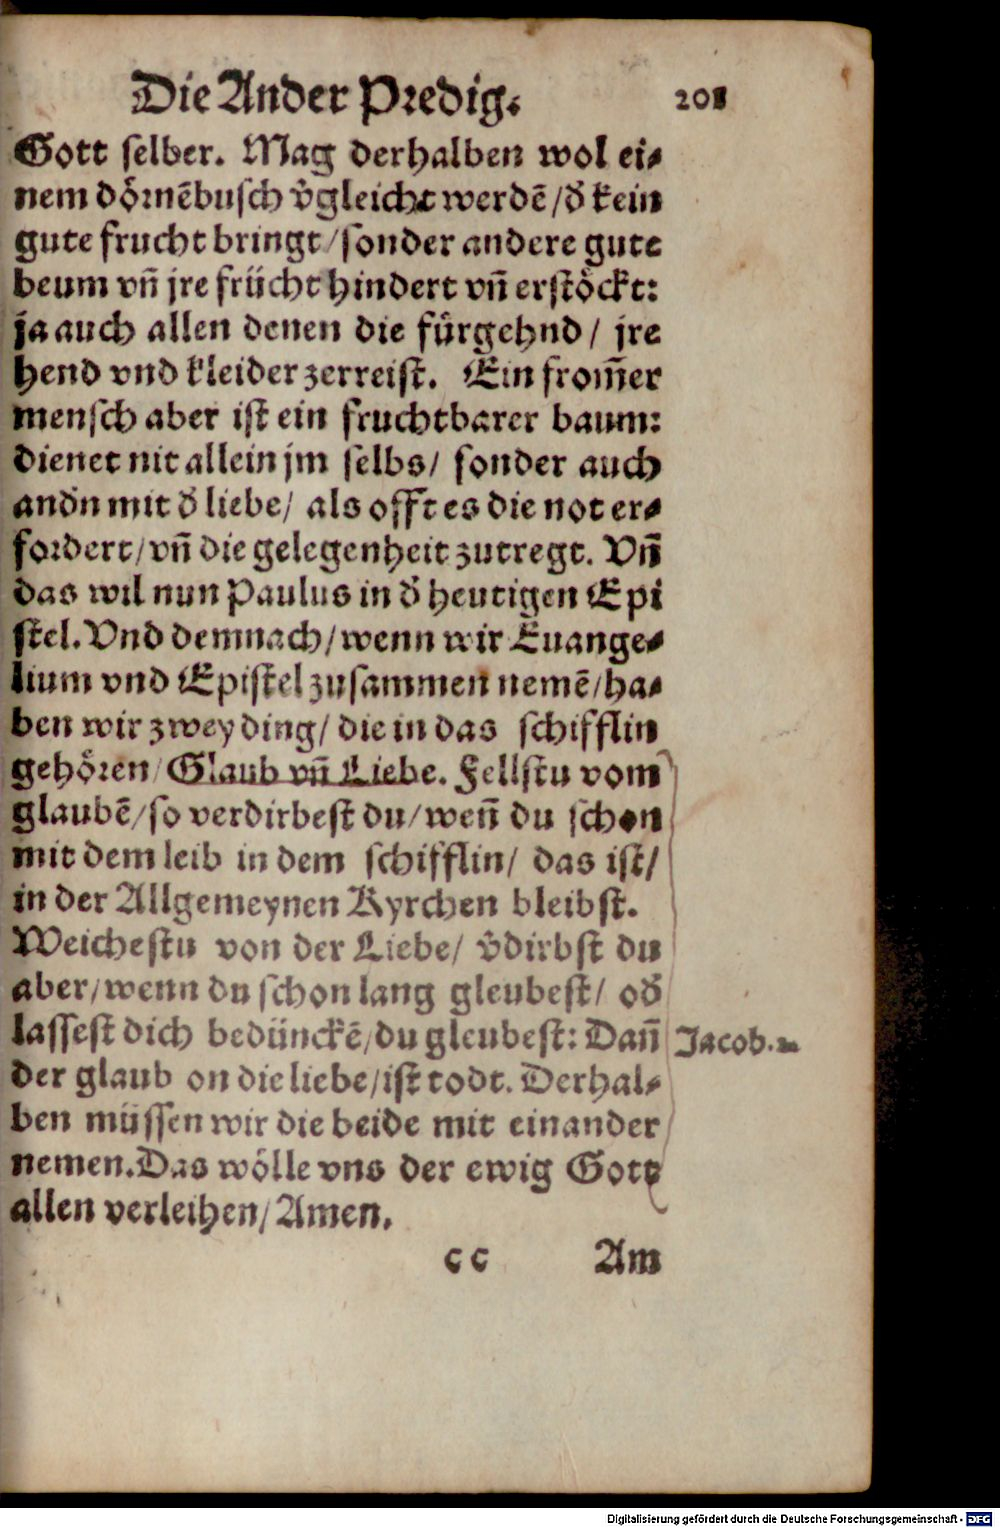 Die Ander Predig. 201
Gott selber. Mag derhalben wol ei⸗
nem dörnēbusch v̄gleicht werdē/d̄ kein
gute frucht bringt/sonder andere gute
beum vn̄ jre frücht hindert vn̄ erstöckt:
ja auch allen denen die fürgehnd/ jre
hend vnd kleider zerreist. Ein from̄er
mensch aber ist ein fruchtbarer baum:
dienet nit allein jm selbs/ sonder auch
and̄n mit d̄ liebe/ als offt es die not er⸗
fordert/vn̄ die gelegenheit zutregt. Vn̄
das wil nun Paulus in d̄ heutigen Epi
stel. Vnd demnach/wenn wir Euange⸗
lium vnd Epistel zusammen nemē/ha⸗
ben wir zwey ding/ die in das schifflin
gehören/Glaub vn̄ Liebe. Fellstu vom
glaubē/so verdirbest du/wen̄ du schon
mit dem leib in dem schifflin/ das ist/
in der Allgemeynen Kyrchen bleibst.
Weichestu von der Liebe/ v̄dirbst du
aber/wenn du schon lang gleubest/ od̄
lassest dich bedünckē/du gleubest: Dan̄
Jacob. 2
der glaub on die liebe/ist todt. Derhal⸗
ben müssen wir die beide mit einander
nemen. Das wölle vns der ewig Gott
allen verleihen/Amen.
cc Am
Digitalisierung gefördert durch die Deutsche Forschungsgemeinschaft - DFG